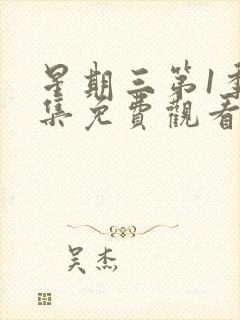 星期三第1季
集免費觀看
吴杰